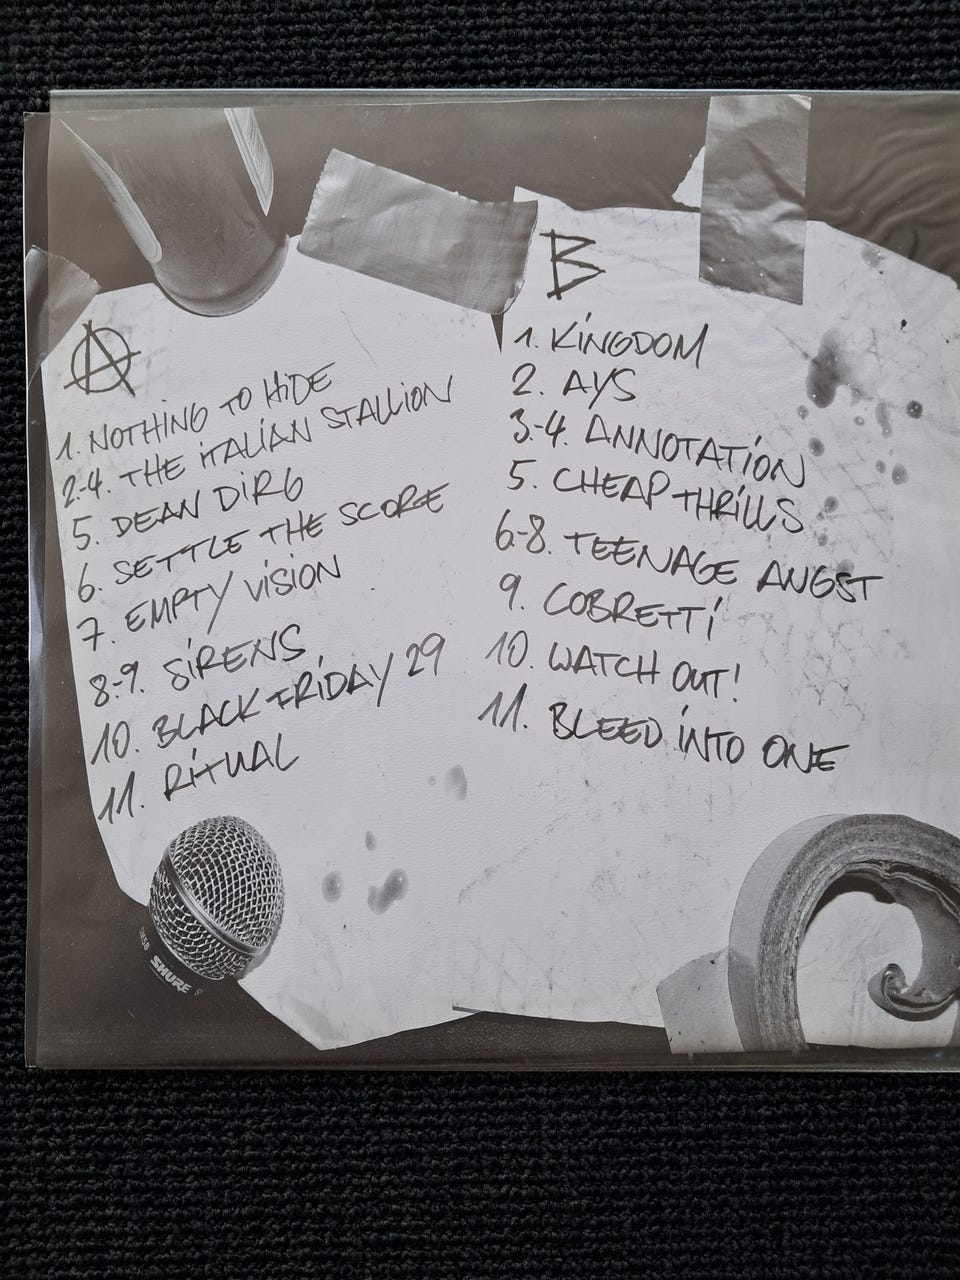 A
1. NOTHING TO HIDE
2.-4. THE ITALIAN STALLION
5. DEAN DIRG
6. SETTLE THE SCORE
7. EMPTY VISION
8.-9. SIRENS
10. BLACK FRIDAY 29
11. RITUAL
B
1. KINGDOM
2. AYS
3.-4. ANNOTATION
5. CHEAP THRILLS
6.-8. TEENAGE ANGST
9. COBRETTI
10. WATCH OUT!
11. BLEED INTO ONE
SHURE